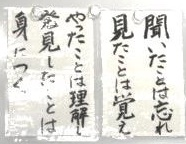 聞いたことは忘れ
見たことは覚え
やったことは理解し
発見したことは
身につく